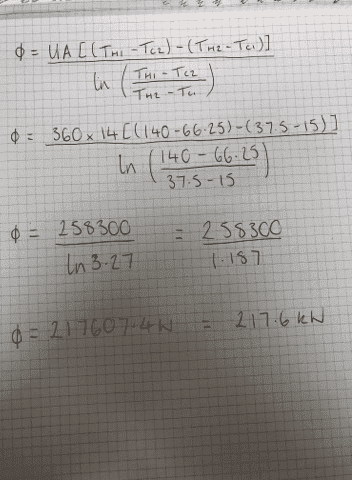 ϕ = UA[(TH1 - TC2) - (TH2 - TC1)]
ln (TH1 - TC2 / TH2 - TC1)
ϕ = 360 × 14[(140 - 66.25) - (37.5 - 15)]
ln (140 - 66.25 / 37.5 - 15)
ϕ = 258300 / ln 3.27 = 258300 / 1.187
ϕ = 217607.4W = 217.6 kW